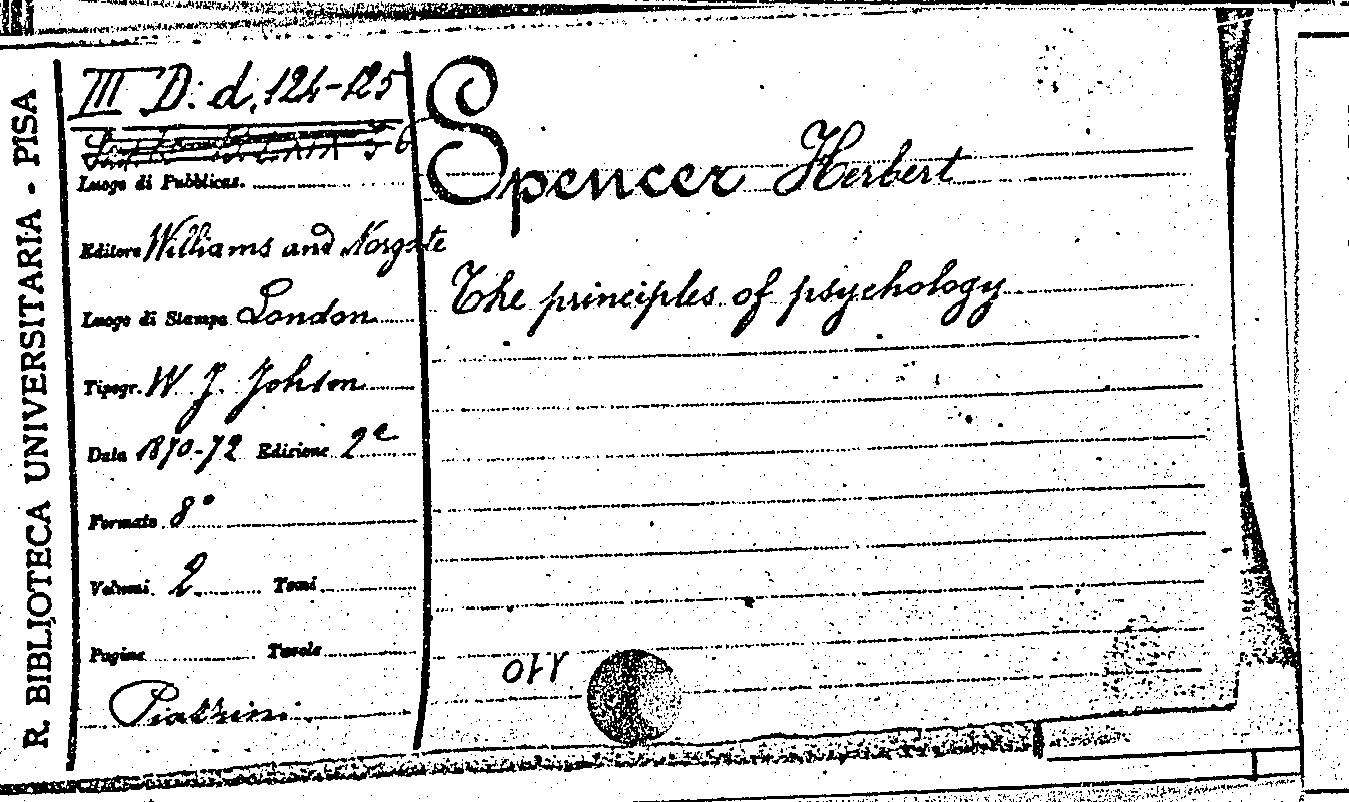 R. BIBLIOTECA UNIVERSITARIA - PISA
III D. d. 124-125
Luogo di Pubblicaz.
Editore Williams and Norgate
Luogo di Stampa London
Tipogr. W. J. Johson
Data 1870-72 Edizione 2ª
Formato 8°
Volumi 2 Tomi
Pagine Tavole
Spencer Herbert
The principles of psychology